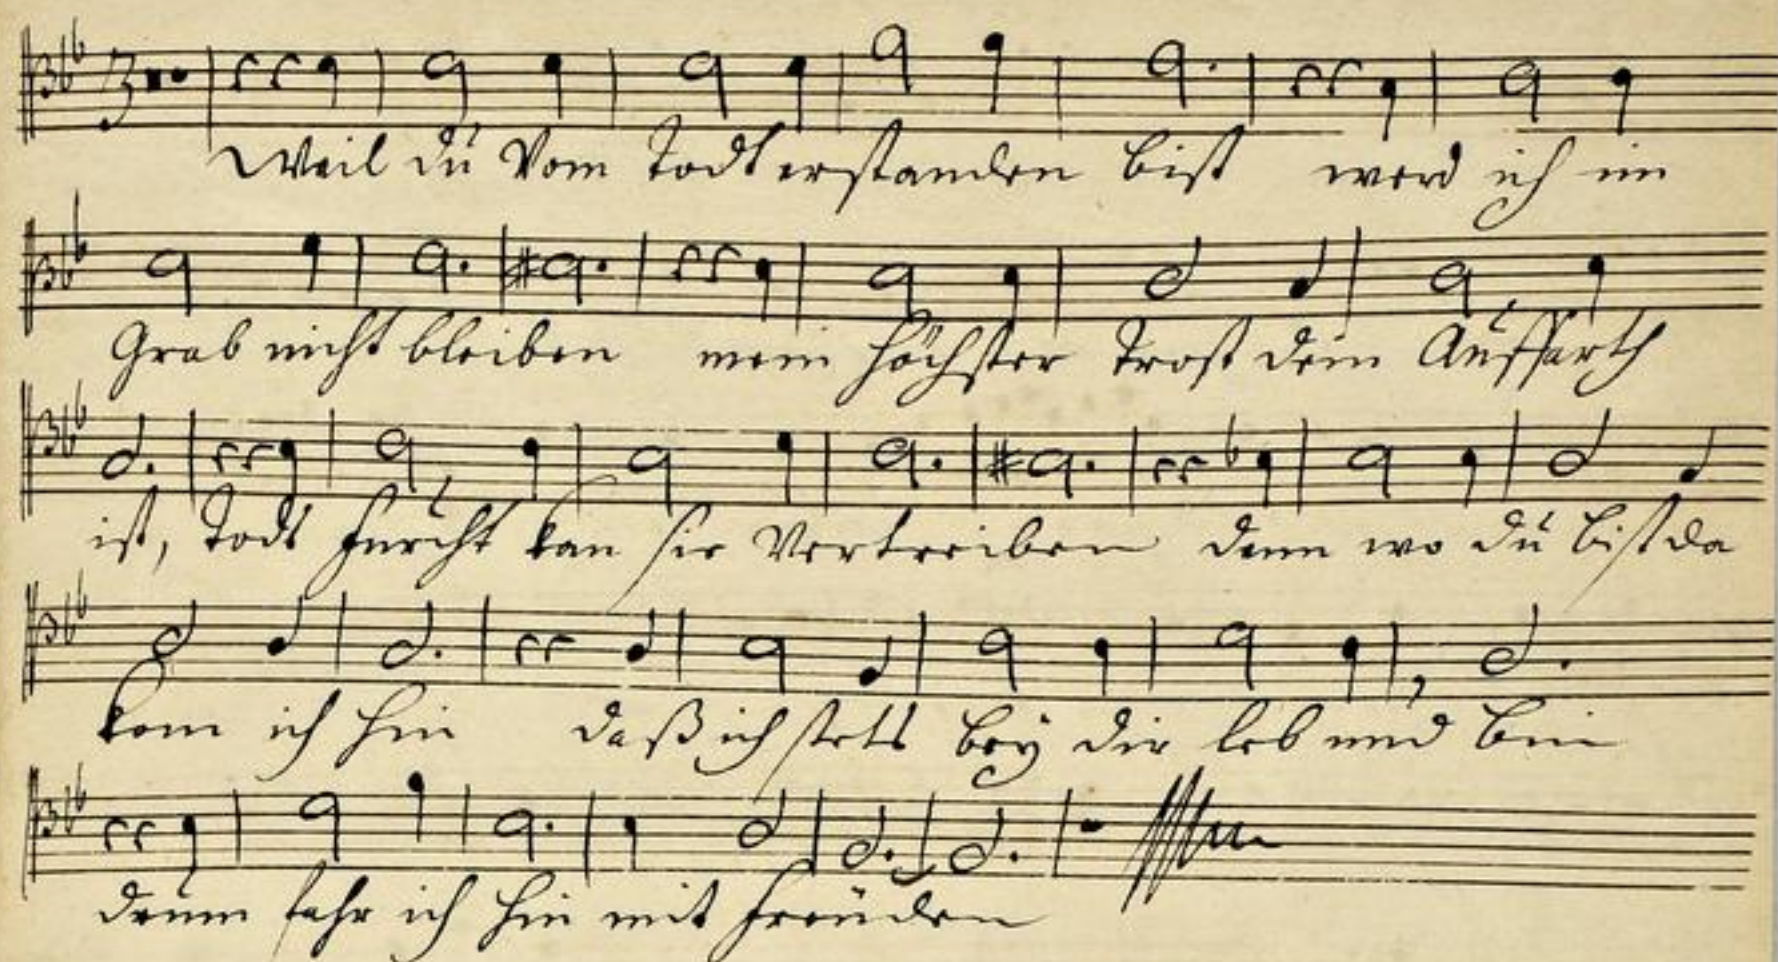 Weil du Vom Todt erstanden bist werd ich im
Grab nicht bleiben mein höchster Trost dein Auffarth
ist, Todts furcht kan sie Vertreiben denn wo du bist da
kom ich hin daß ich stets beÿ dir leb und bin
drum fahr ich hin mit freuden